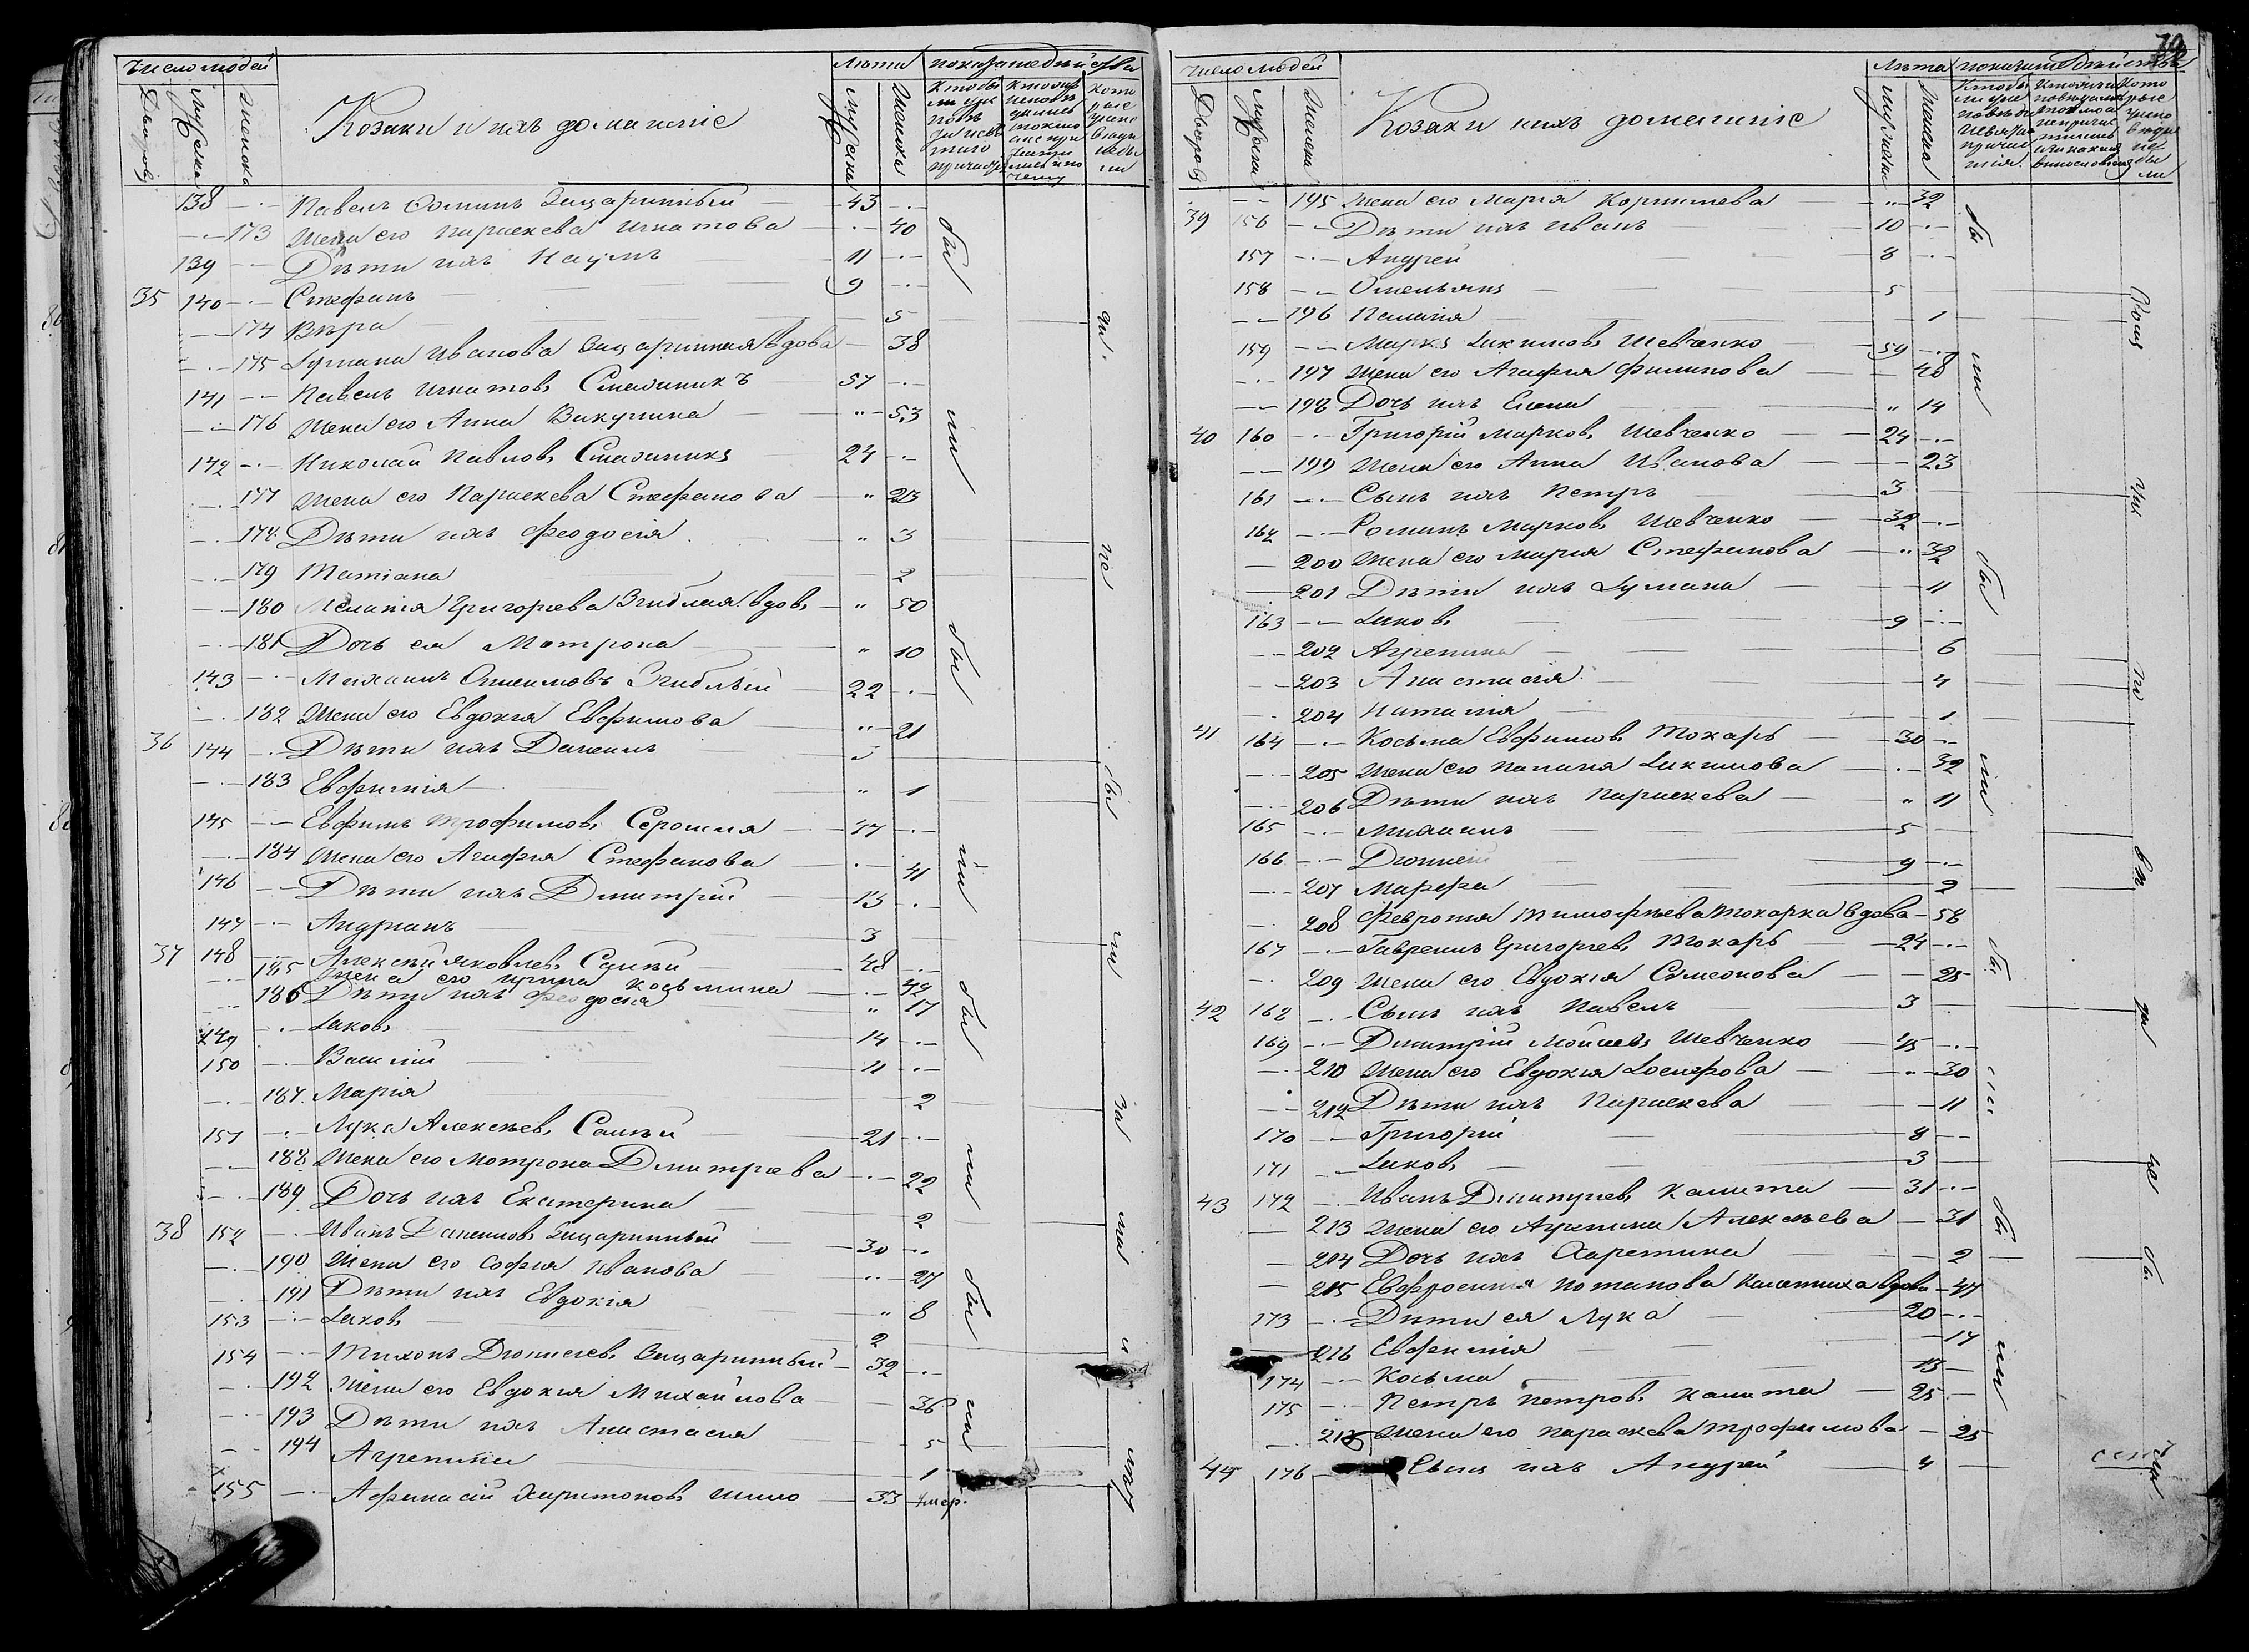 Число людей
Дворовъ Мужска Женска
Козаки и ихъ домашніе
Лѣта
Мужска Женска
показаніе дѣйства
138 Павелъ Зацаринный 43
173 Жена его Параскева Игнатова 40
139 Дѣти ихъ Наумъ 11
35 140 Стефанъ 9
174 Вѣра 5
175 Іуліана Иванова Зацаринная вдова 38
141 Павелъ Игнатовъ 57
176 Жена его Анна Викулина 53
142 Николай Павловъ 24
177 Жена его Параскева Стефанова 23
178 Дѣти ихъ Феодосія 3
179 Татіана 2
180 Меланія Григорьева Згиблая вдов. 50
181 Дочь ея Матрона 10
143 Михаилъ Згиблый 22
182 Жена его Евдокія Евфимова 21
36 144 Дѣти ихъ Даніилъ
183 Евфимія 1
145 Евфимъ Трофимовъ 47
184 Жена его Агафія Стефанова 41
146 Дѣти ихъ Дмитрій 13
147 Андріанъ 3
37 148 Алексѣй Яковлевъ 48
185 Жена его Ирина Косьмина 42
186 Дѣти ихъ Феодосія 17
149 Іаковъ 14
150 Василій 11
187 Марія 2
151 Лука Алексѣевъ 21
188 Жена его Мотрона Дмитріева 22
189 Дочь ихъ Екатерина 2
38 152 Иванъ Даніиловъ Зацаринный 30
190 Жена его Софія Иванова 27
191 Дѣти ихъ Евдокія 8
153 Іаковъ 2
154 Тихонъ Діонисіевъ Зацаринный 32
192 Жена его Евдокія Михайлова 36
193 Дѣти ихъ Анастасія 5
194 Агрепина 1
155 Афанасій Харитоновъ Шило 33 умер.
были были были были были
Число людей
Дворовъ Мужска Женска
Козаки и ихъ домашніе
Лѣта
195 Жена его Марія Корнилева 32
39 156 Дѣти ихъ Иванъ 10
157 Андрей 8
158 Омельянъ 5
196 Пелагія 1
159 Маркъ Іакимовъ Шевченко 59
197 Жена его Агафія Филипова 48
198 Дочь ихъ Елена 14
40 160 Григорій Марковъ Шевченко 24
199 Жена его Анна Иванова 23
161 Сынъ ихъ Петръ 3
162 Романъ Марковъ Шевченко 32
200 Жена его Марія Стефанова 32
201 Дѣти ихъ Іуліана 11
163 Іаковъ 9
202 Агрепина 6
203 Анастасія 4
204 Наталія 1
41 164 Косьма Евфимовъ Токарь 30
205 Жена его Іакимова 32
206 Дѣти ихъ Параскева 11
165 Михаилъ 5
166 Діонисій 9
207 Марфа 2
208 Февронія Тимофѣева Токарка вдова 58
167 Гавреилъ Григорьевъ Токарь 24
209 Жена его Евдокія Симеонова 25
42 168 Сынъ ихъ Павелъ 3
169 Дмитрій Мойсеевъ Шевченко 45
210 Жена его Евдокія Іосифова 30
212 Дѣти ихъ Параскева 11
170 Григорій 8
171 Іаковъ 3
43 172 Иванъ Дмитріевъ Калита 31
213 Жена его Агрепина Алексѣева 31
214 Дочь ихъ Харетина 2
215 Евфросинія Потапова Калитиха вдова 47
173 Дѣти ея Лука 20
216 Евфимія 17
174 Косьма 13
175 Петръ Петровъ Калита 25
Жена его Параскева Трофимова 25
44 176 Сынъ ихъ Андрей 4
были были были были